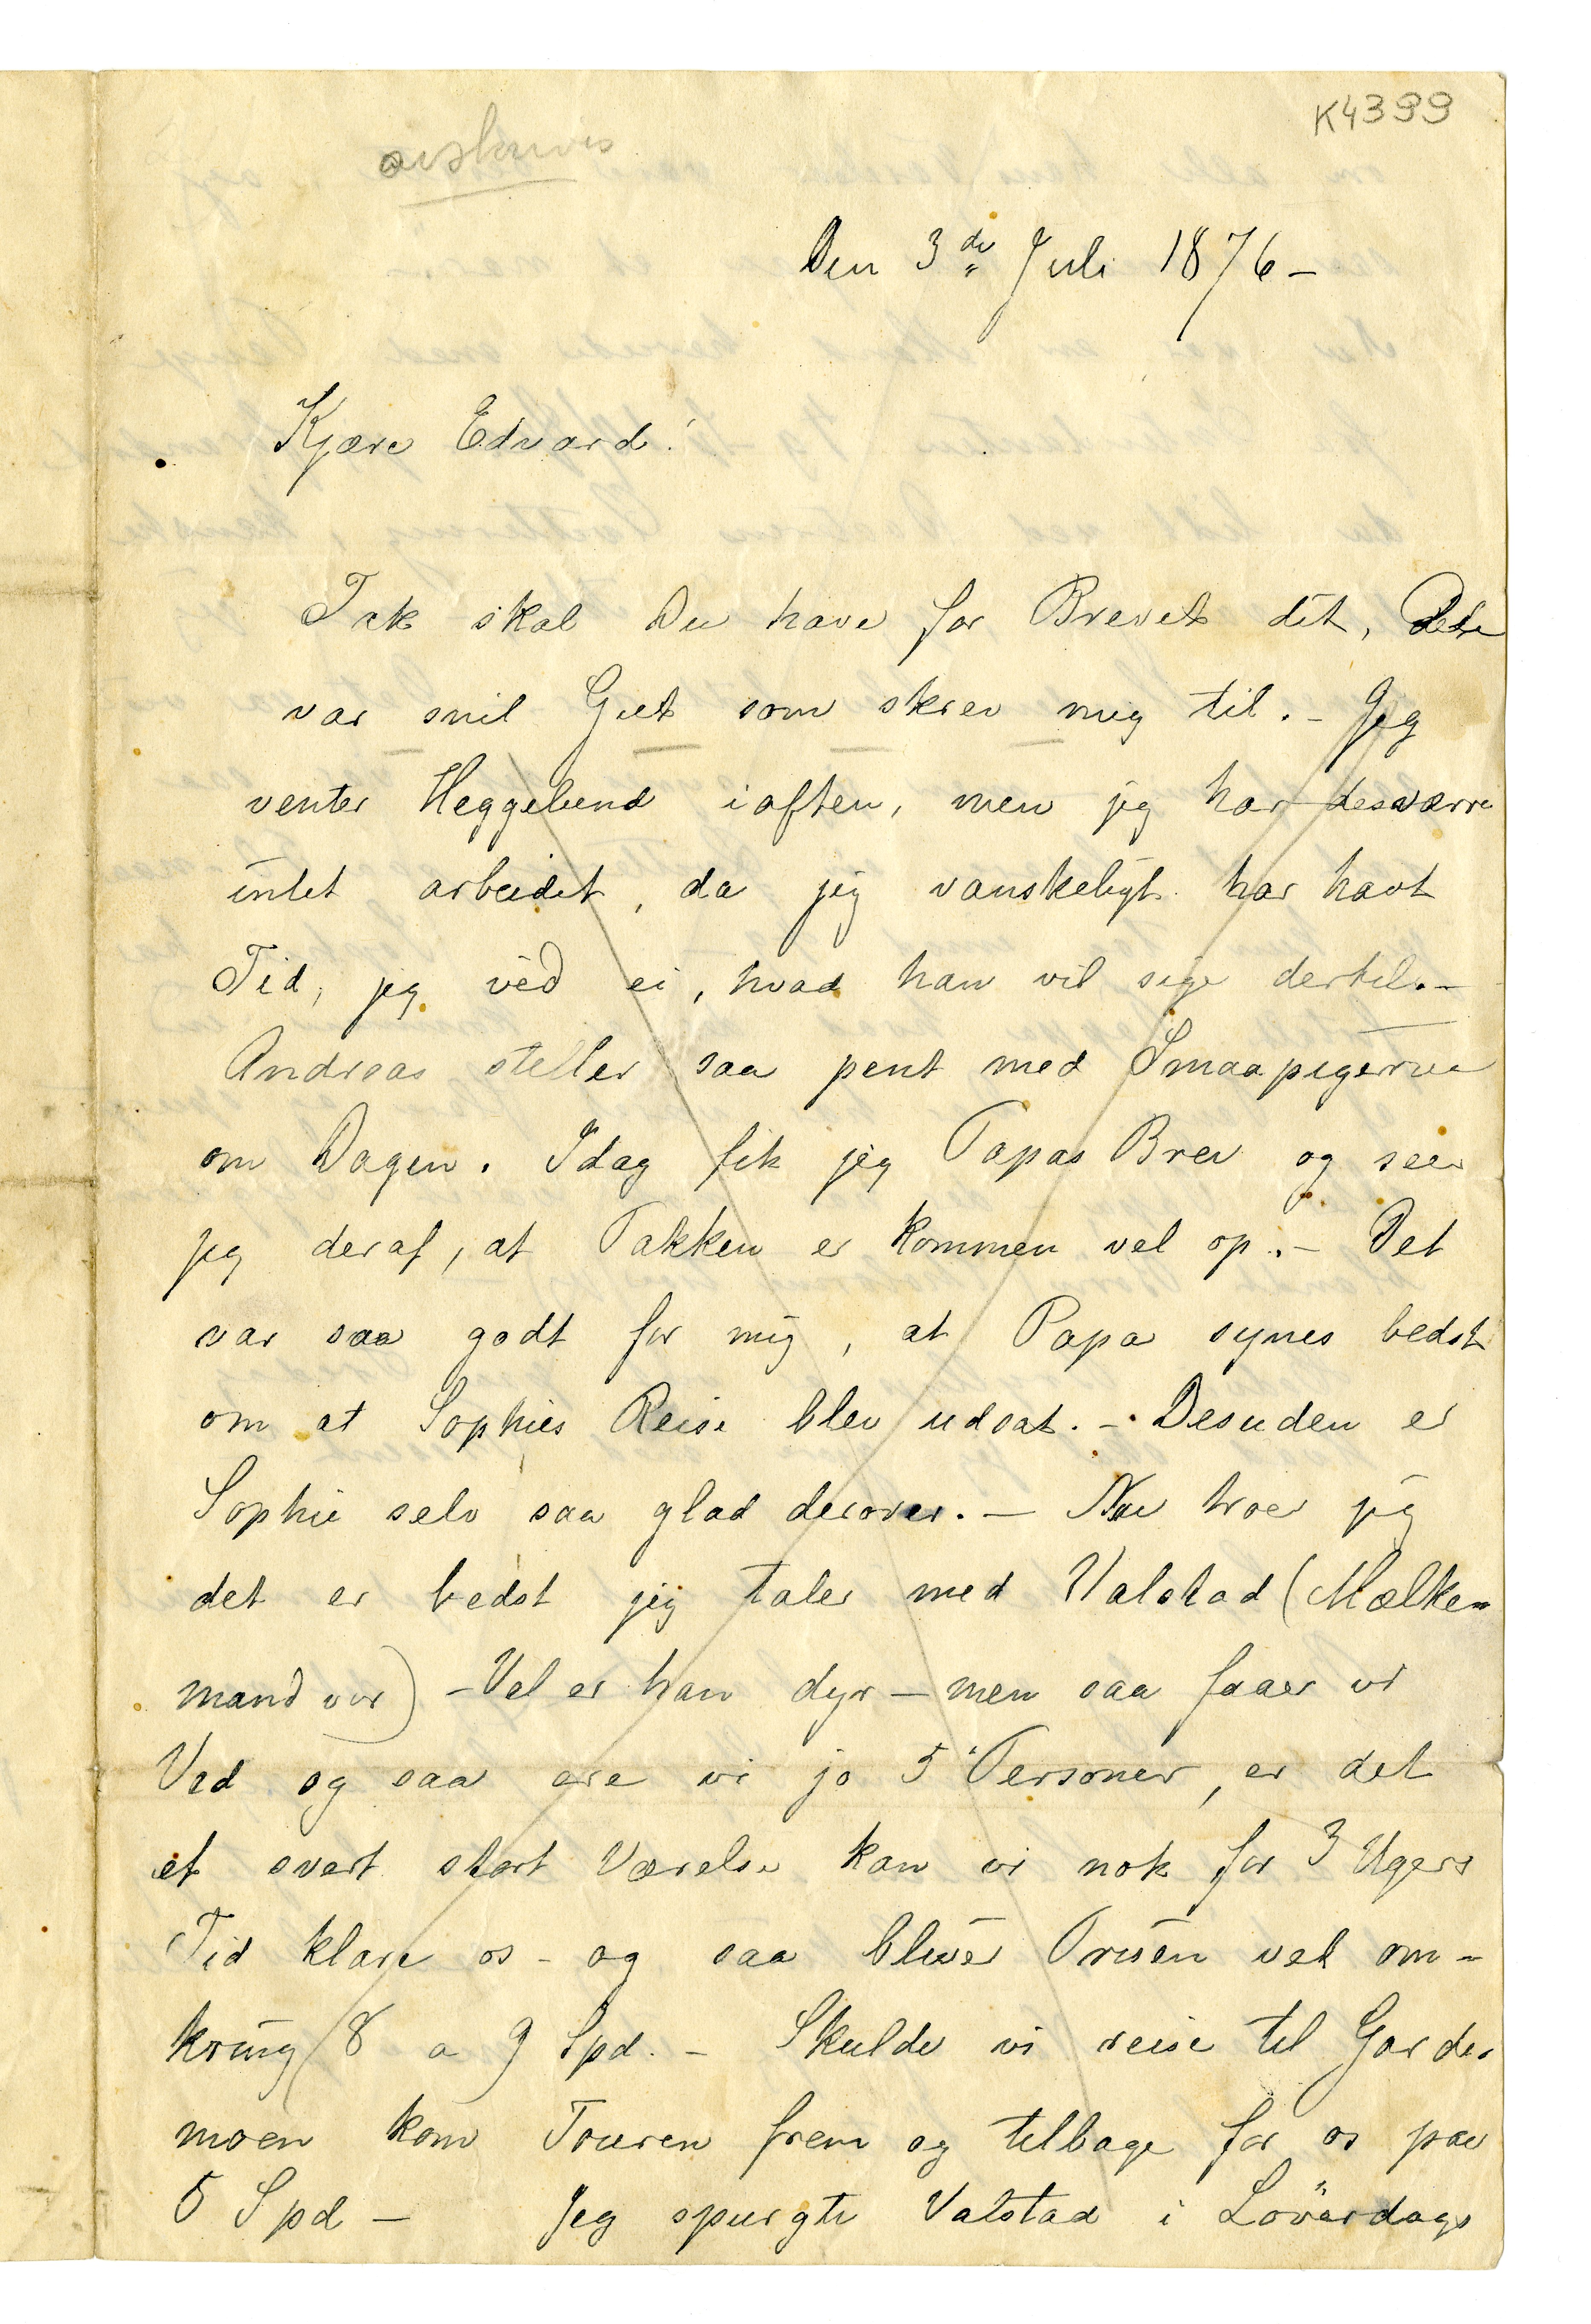 K4399
avskrives
Den 3de Juli 1876 –
Kjære Edvard!
Tak skal Du have for Brevet dit, Det
var snil Gut som skrev mig til. – Jeg
venter Heggelund iaften, men jeg har desværre
intet arbeidet, da jeg vanskeligt har havt
Tid, jeg véd ei, hvad han vil sige dertil. –
Andreas steller saa pent med Smaapigerne
om Dagen. Idag fik jeg Papas Brev og seer
jeg deraf, at Pakken er kommen vel op. – Det
var saa godt for mig, at Papa synes bedst
om at Sophies Reise blev udsat. – Desuden er
Sophie selv saa glad derover. – Nu troer jeg
det er bedst jeg taler med Valstad (Mælke-
mand vor) – Vel er han dyr – men saa faaer vi
Ved og saa ere vi jo 5 Personer, er det
et svert stort Værelse kan vi nok for 3 Ugers
Tid klare os – og saa bliver Prisen vel om-
kring 8 a 9 Spd. – Skulde vi reise til Garder
moen kom Touren frem og tilbage for os paa
5 Spd – Jeg spurgte Valstad i Löverdags